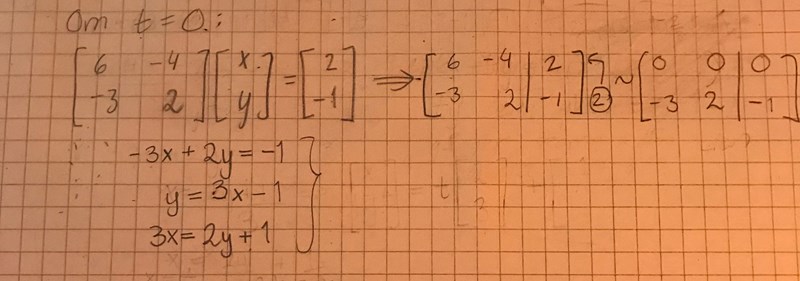 Om t = 0.:
[6 -4; -3 2] [x.; y] = [2; -1] ⇒ [6 -4 | 2; -3 2 | -1] ② ~ [0 0 | 0; -3 2 | -1]
-3x + 2y = -1
y = 3x - 1
3x = 2y + 1